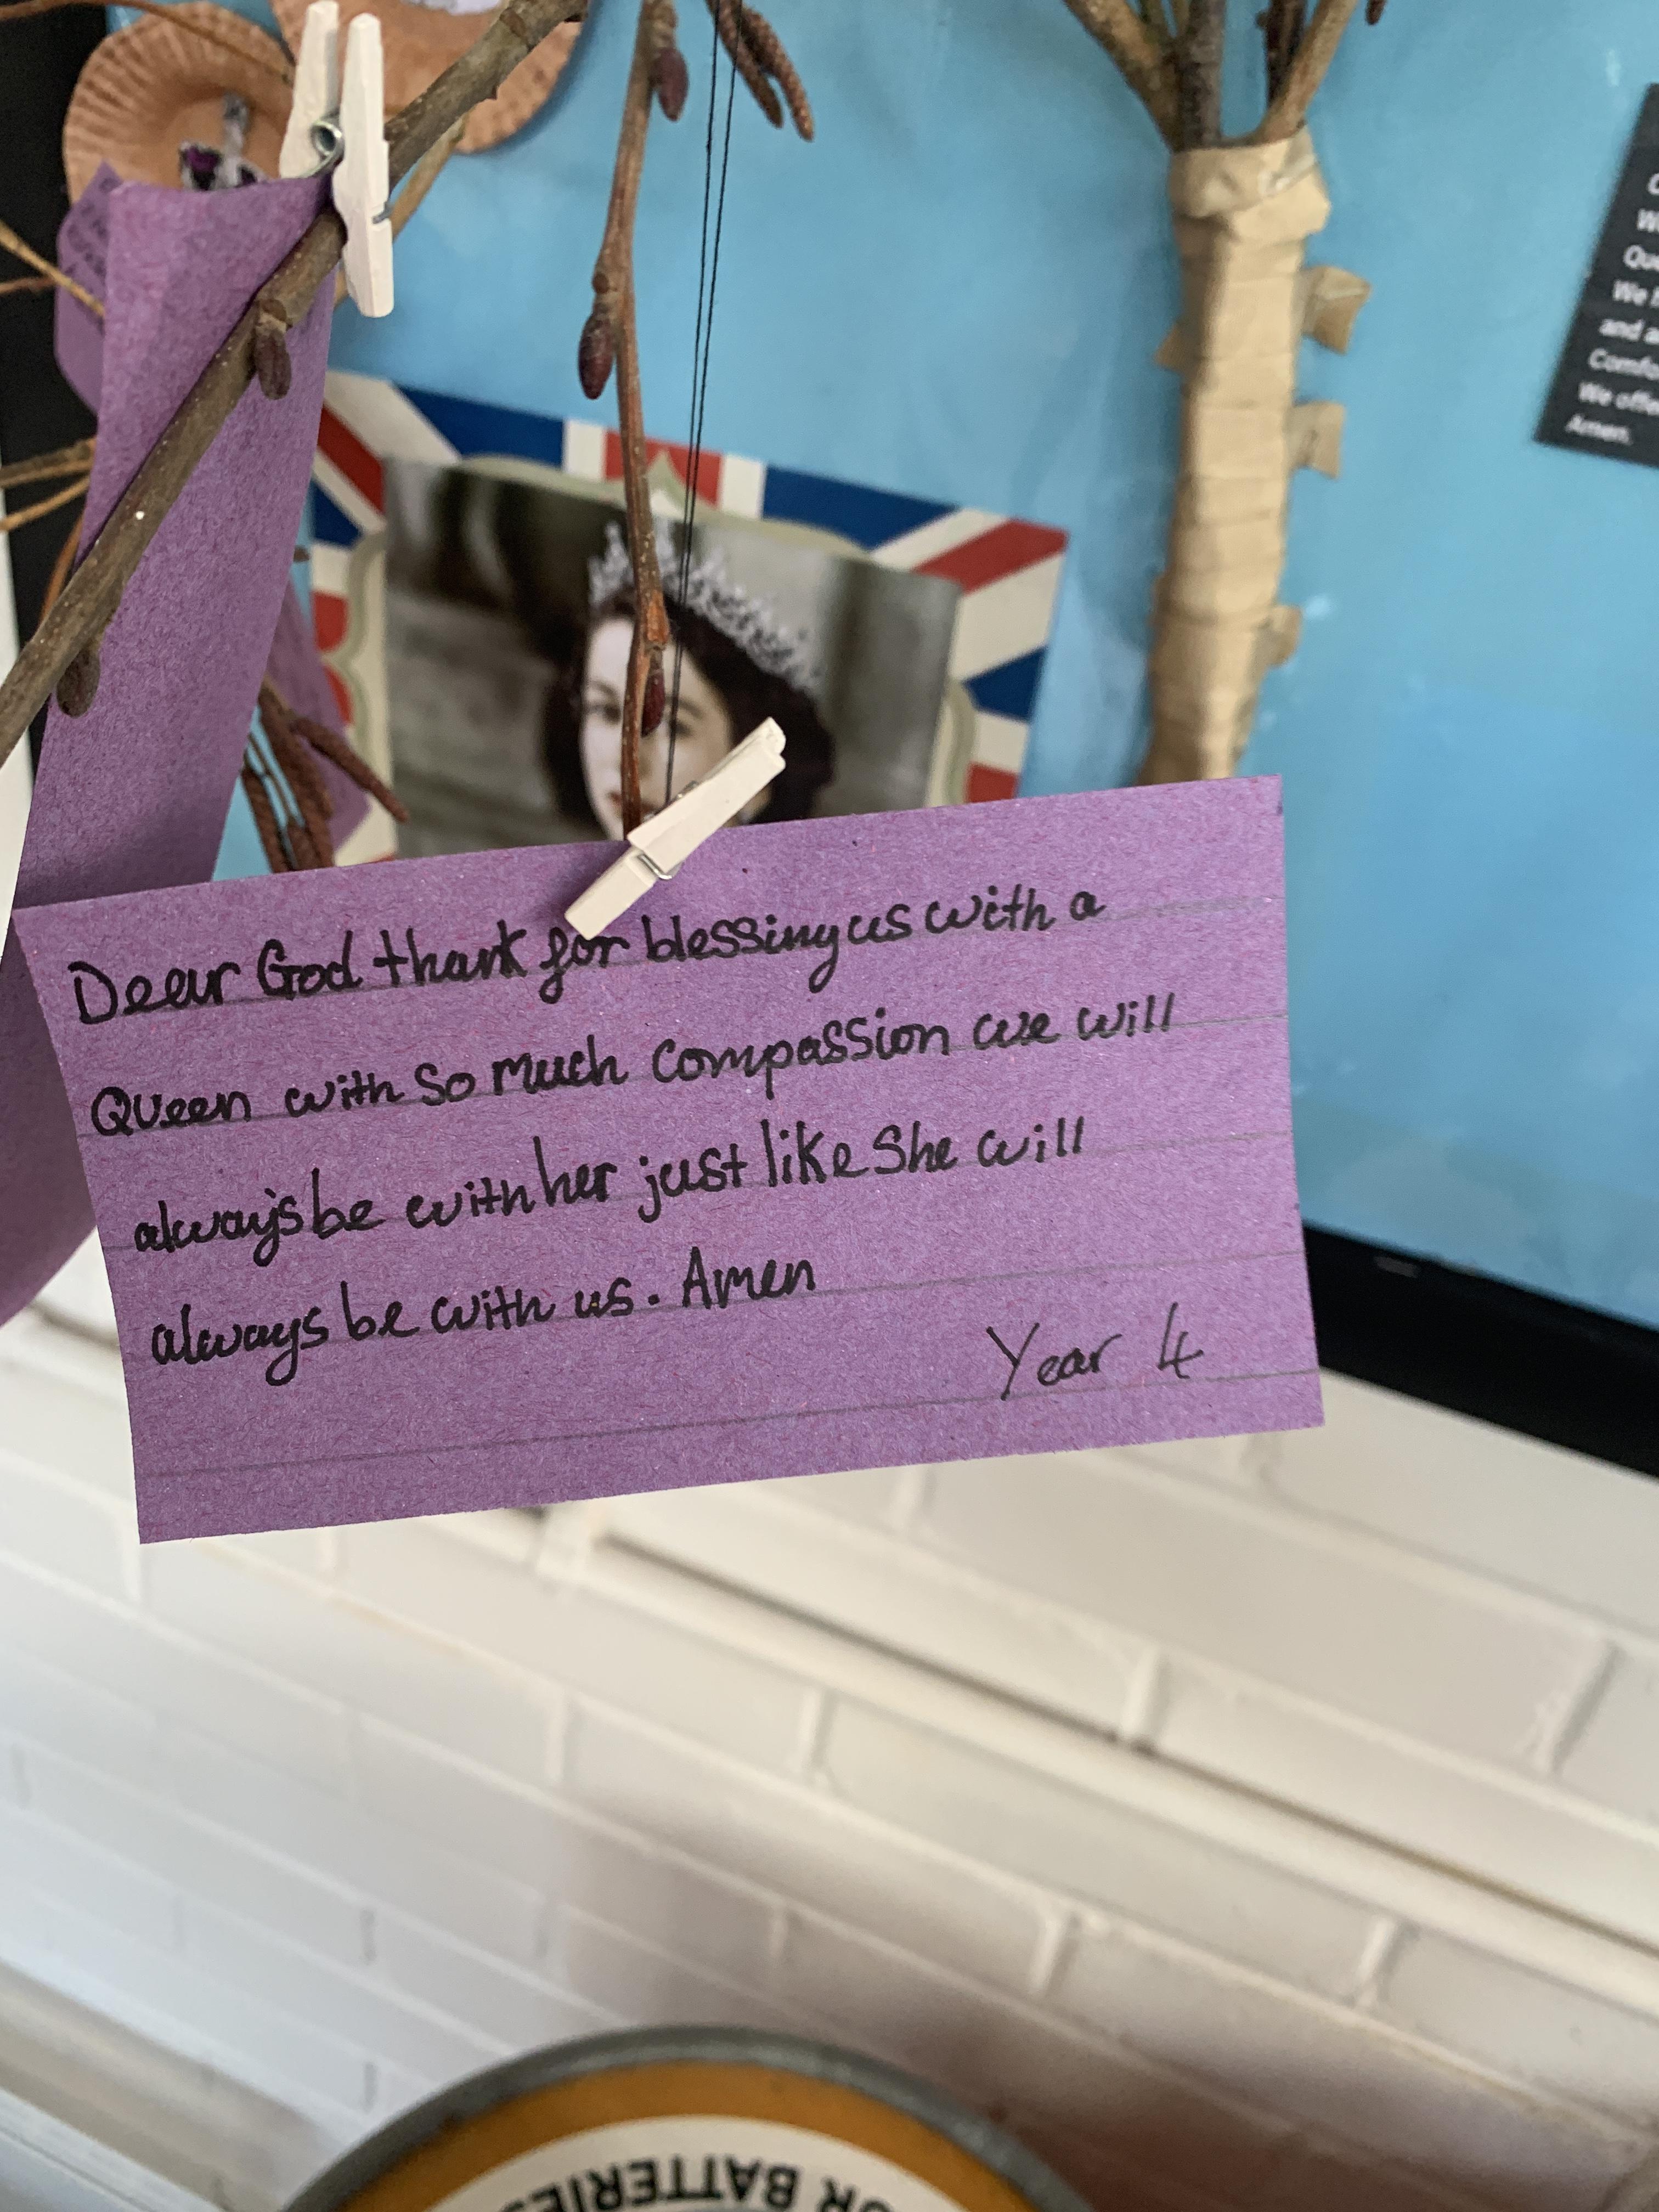 Dear God thank for blessing us with a
Queen with so much compassion we will
always be with her just like she will
always be with us. Amen
Year 4
We
and a
We offe
Amen.
OR BATTERIES